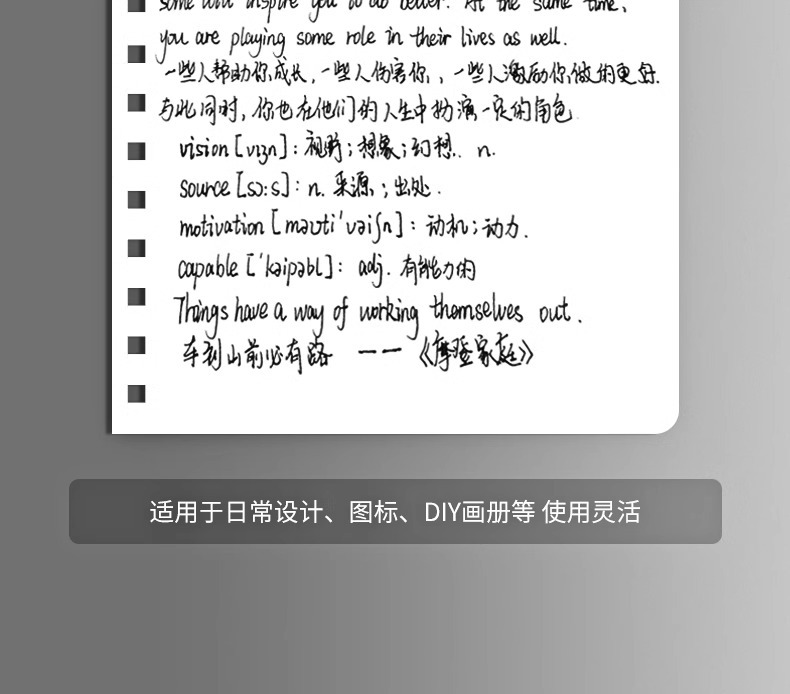 some will inspire you to do better. At the same time,
you are playing some role in their lives as well.
一些人帮助你成长，一些人伤害你，、一些人激励你做的更好.
与此同时，你也在他们的人生中扮演一定的角色.
vision [vɪʒn]: 视野；想象；幻想. n.
source [sɔ:s]: n. 来源；出处.
motivation [məʊti'vəiʃn]: 动机；动力.
capable ['kəipəbl]: adj. 有能力的
Things have a way of working themselves out.
车到山前必有路 一一《摩登家庭》
适用于日常设计、图标、DIY画册等 使用灵活